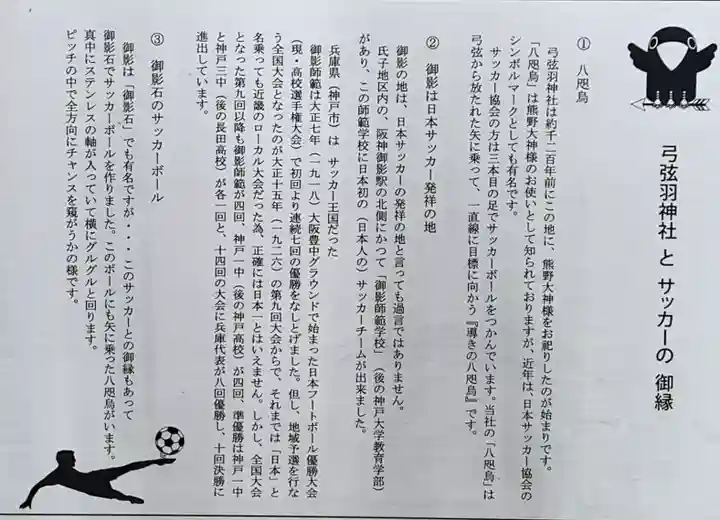 弓弦羽神社 と サッカーの 御縁
① 八咫烏
弓弦羽神社は約千二百年前にこの地に、熊野大神様をお祀りしたのが始まりです。
「八咫烏」は熊野大神様のお使いとして知られておりますが、近年は、日本サッカー協会の
シンボルマークとしても有名です。
サッカー協会の方は三本目の足でサッカーボールをつかんでいます。当社の「八咫烏」は
弓弦から放たれた矢に乗って、一直線に目標に向かう『導きの八咫烏』です。
② 御影は日本サッカー発祥の地
御影の地は、日本サッカーの発祥の地と言っても過言ではありません。
氏子地区内の、阪神御影駅の北側にかつて「御影師範学校」（後の神戸大学教育学部）
があり、この師範学校に日本初の（日本人の）サッカーチームが出来ました。
兵庫県（神戸市）は サッカー王国だった
御影師範は大正七年（一九一八）大阪豊中グラウンドで始まった日本フートボール優勝大会
（現・高校選手権大会）で初回より連続七回の優勝をなしとげました。但し、地域予選を行な
う全国大会となったのが大正十五年（一九二六）の第九回大会からで、それまでは「日本」と
名乗っても近畿のローカル大会だった為、正確には日本一とはいえません。しかし、全国大会
となった第九回以降も御影師範が四回、神戸一中（後の神戸高校）が四回、準優勝は神戸一中
と神戸三中（後の長田高校）が各一回と、十四回の大会に兵庫代表が八回優勝し、十回決勝に
進出しています。
③ 御影石のサッカーボール
御影は「御影石」でも有名ですが・・・このサッカーとの御縁もあって
御影石でサッカーボールを作りました。このボールにも矢に乗った八咫烏がいます。
真中にステンレスの軸が入っていて横にグルグルと回ります。
ピッチの中で全方向にチャンスを窺がうかの様です。